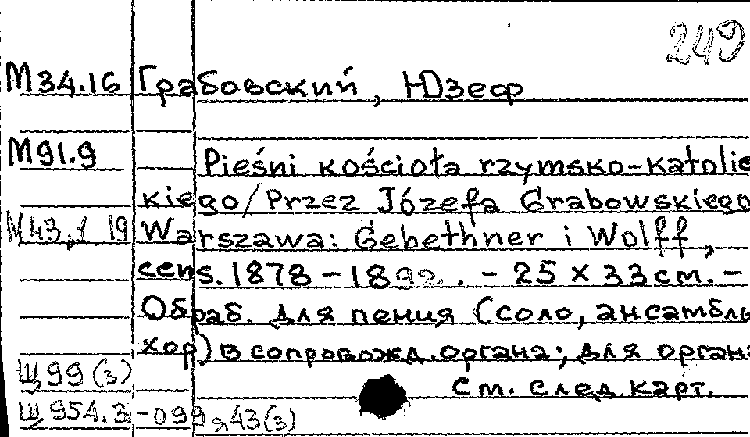 249
М34.16 Грабовский, Юзеф
М91.9 Pieśni kościoła rzymsko-katolic
kiego/Przez Józefa Grabowskiego
М43 19 Warszawa: Gebethner i Wolff,
cens. 1878 - 1892. - 25 x 33 см. -
Обраб. для пения (соло, ансамбль
хор) в сопровожд. органа; для орган
Щ99(3) См. след. карт.
Щ954.3-099я43(3)